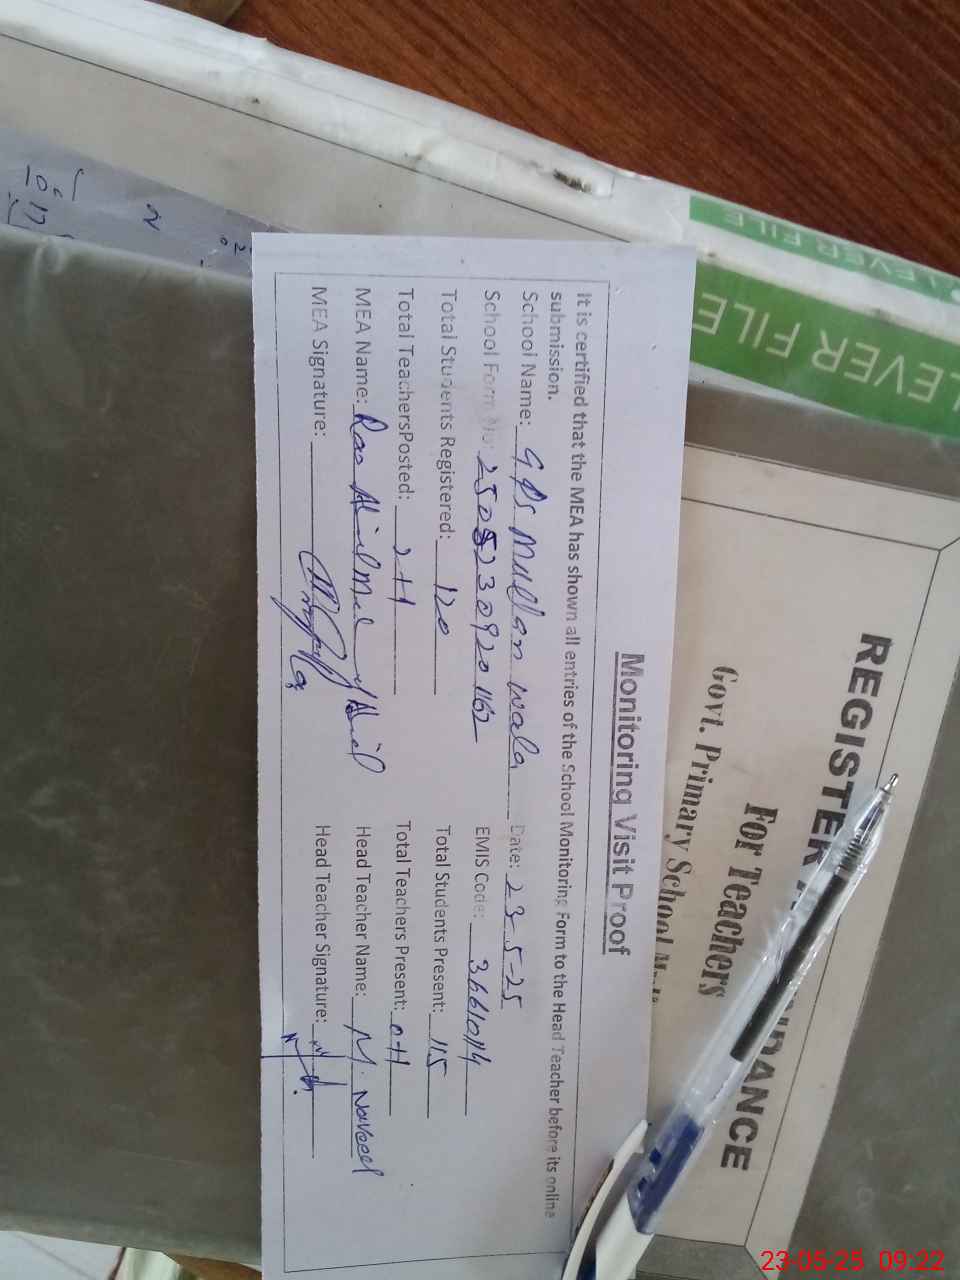 LEVER FILE
LEVER FILE
REGISTER
For Teachers
Govt. Primary School
Monitoring Visit Proof
It is certified that the MEA has shown all entries of the School Monitoring Form to the Head Teacher before its online
submission.
School Name: GPS Mullan wala Date: 23-5-25
School Form No: EMIS Code:
Total Students Registered: 120 Total Students Present: 115
Total TeachersPosted: 2+1 Total Teachers Present: 0+1
MEA Name: Head Teacher Name: M. Naveed
MEA Signature: Head Teacher Signature:
23-05-25 09:22